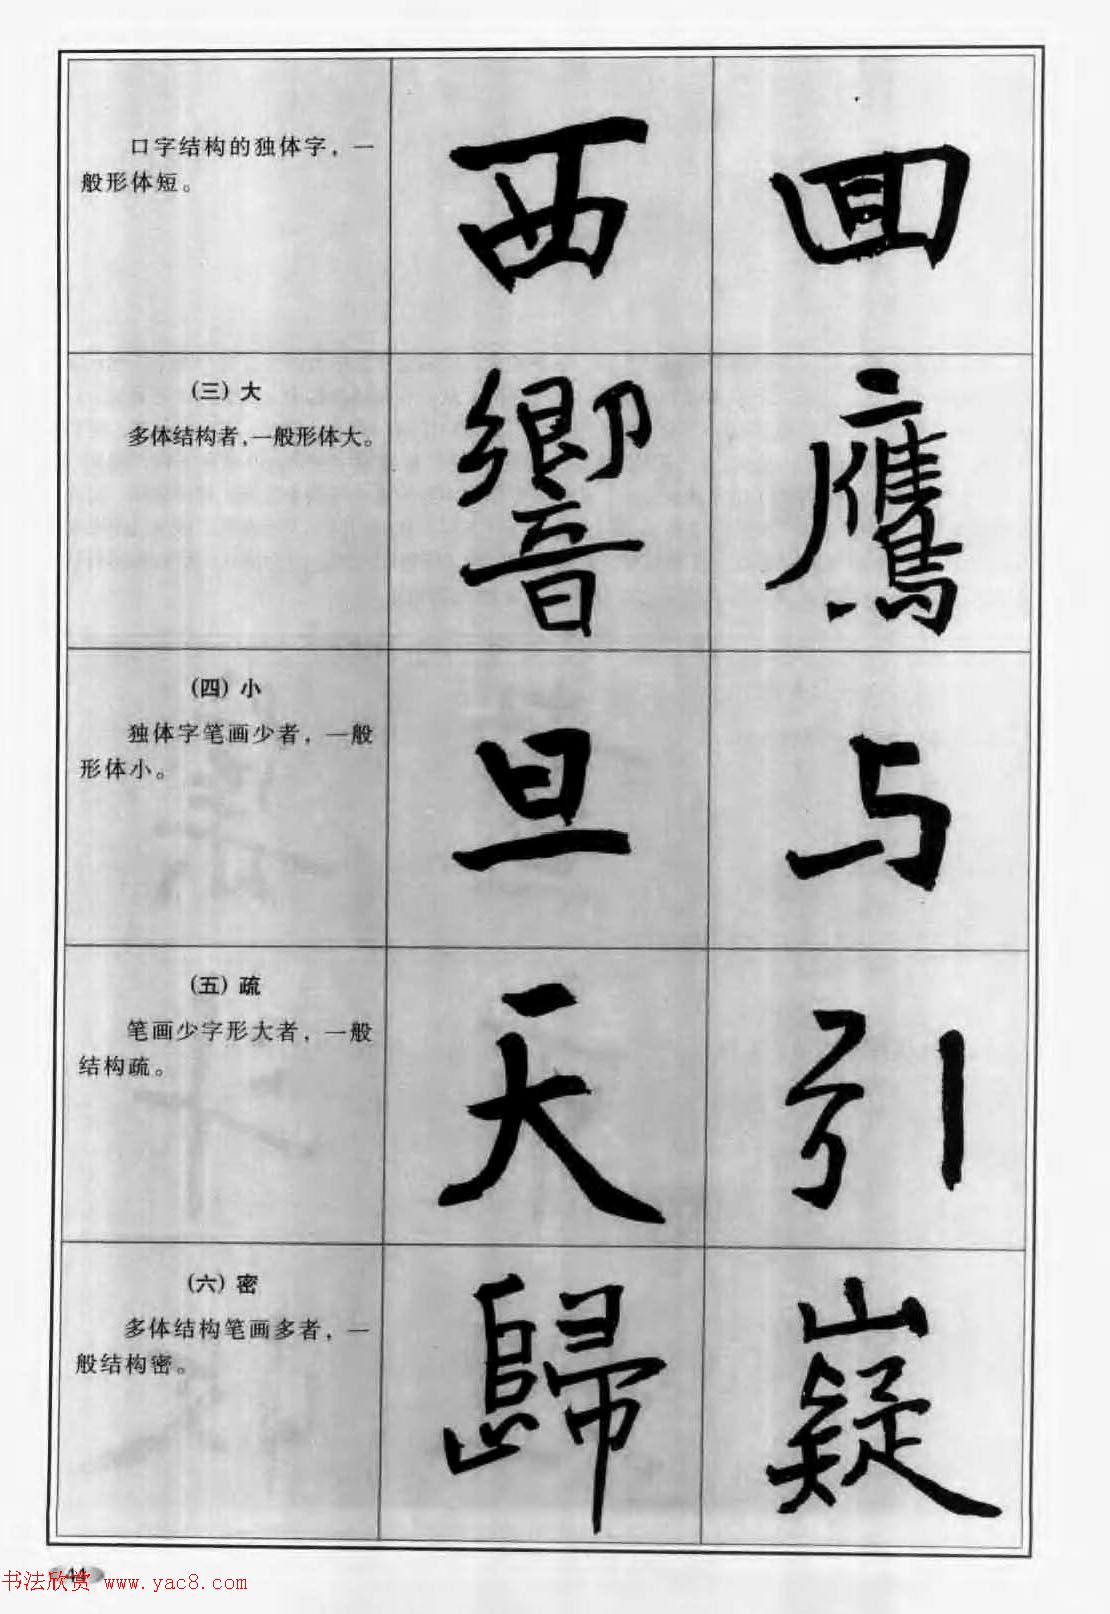 口字结构的独体字，一
般形体短。
西
回
（三）大
多体结构者，一般形体大。
響
鷹
（四）小
独体字笔画少者，一般
形体小。
旦
与
（五）疏
笔画少字形大者，一般
结构疏。
天
引
（六）密
多体结构笔画多者，一
般结构密。
歸
嶷
44
书法欣赏 www.yac8.com